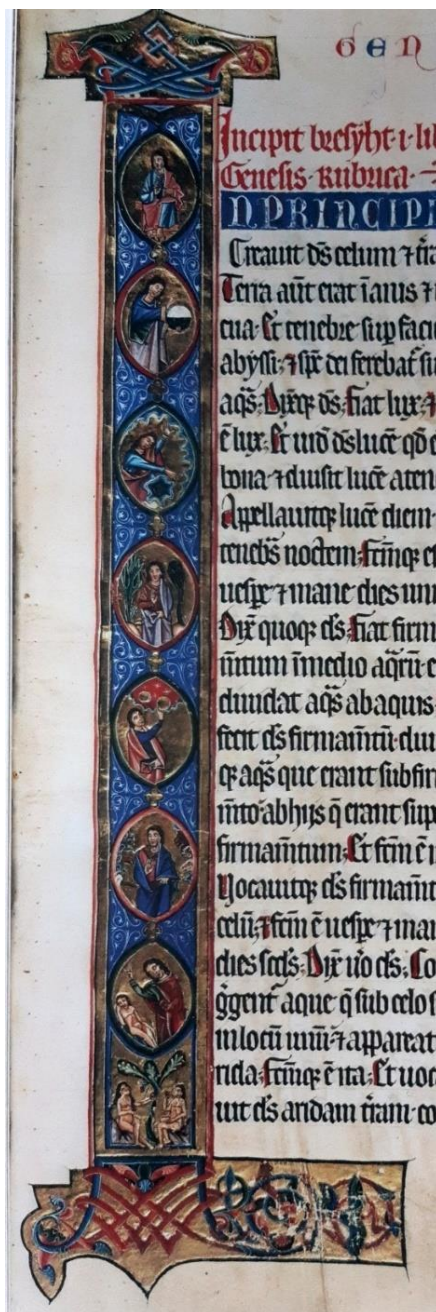 GEN
Incipit bresyht·i·lib
Genesis·Rubrica·
N PRINCIPI
Creauit ds celum ⁊ t̄ra
Terra aūt erat īanis ⁊
cua·Et tenebre sup̄ faci
abyssi·⁊ sp̄c dei ferebat̄ su
aq̄s·Dix̄q; ds·Fiat lux·⁊
ē lux·Et uid̄ ds lucē qd̄ e
bona·⁊ diuisit lucē aten
Appellauitq; lucē diem·
tenebs noctem·Fc̄mq; e
uesp̄e ⁊ mane dies unu
Dix̄ quoq; ds·Fiat firm
m̄tum īmedio aq̄rū·e
diuidat aq̄s abaquis·
fecit ds firmam̄tū·diui
q; aq̄s que erant subfir
m̄to·abhijs q̄ erant sup
firmam̄tum·Et fc̄m ē i
Vocauitq; ds firmam̄t
celū·⁊ fc̄m ē uesp̄e ⁊ man
dies sc̄ds·Dix̄ uo ds·Co
g̊gent̄ aque q̄ sub celo s
inlocū unū·⁊ appareat
rida·Fc̄mq; ē ita·Et uoc
uit ds aridam t̄ram·co